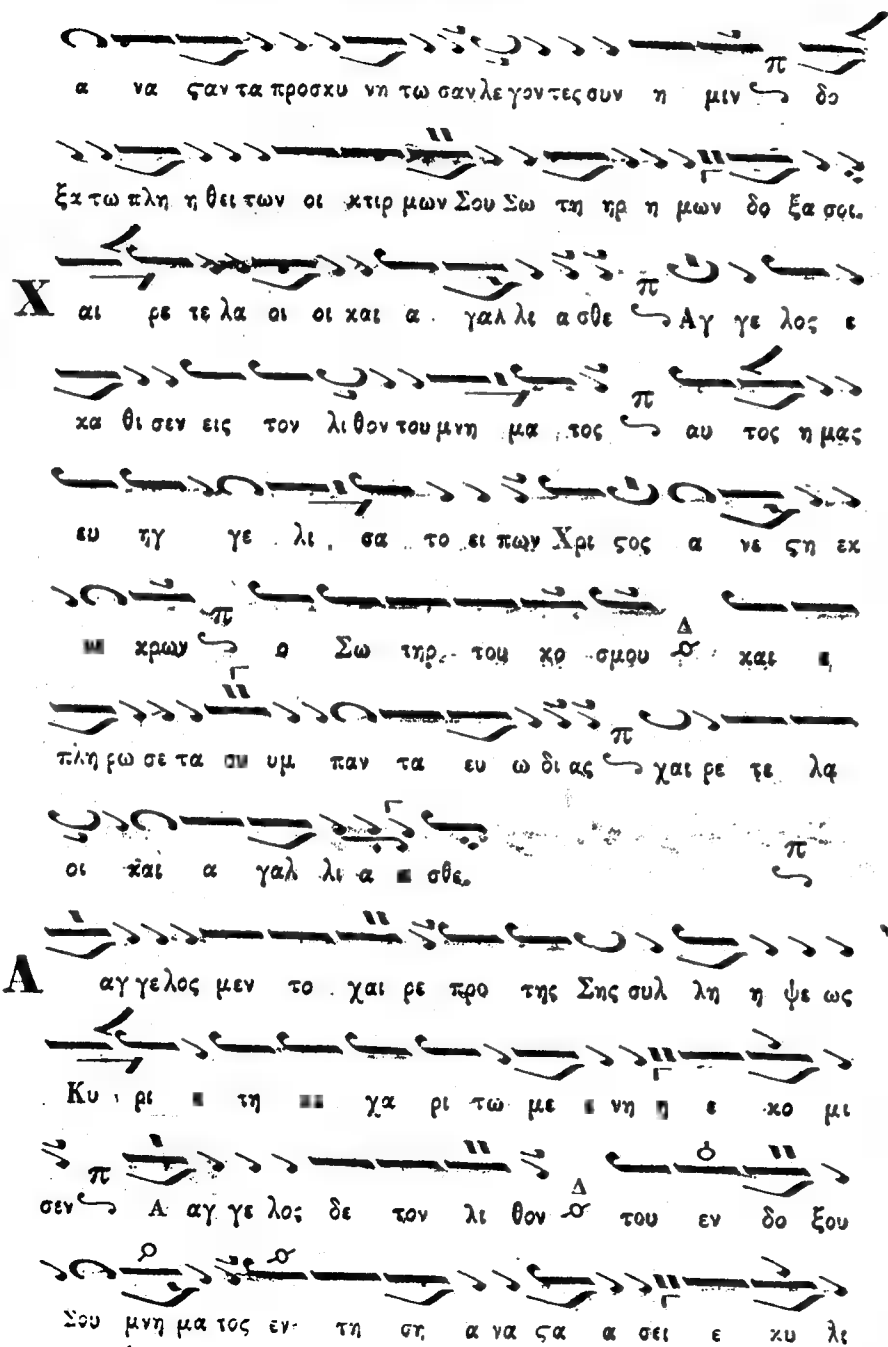 α να ϛαν τα προσκυ νη τω σαν λε γον τες συν η μιν π δο
ξα τω πλη η θει των οι κτιρ μων Σου Σω τη ηρ η μων δο ξα σοι.
Χ αι ρε τε λα οι οι και α γαλ λι α σθε π Αγ γε λος ε
κα θι σεν εις τον λι θον του μνη μα τος π αυ τος η μας
ευ ηγ γε λι σα το ει πων Χρι ϛος α νε ϛη εκ
κρων π ο Σω τηρ του κο σμου Δ και ε
πλη ρω σε τα υμ παν τα ευ ω δι ας π χαι ρε τε λα
οι και α γαλ λι α σθε. π
Α αγ γε λος μεν το χαι ρε προ της Σης συλ λη η ψε ως
Κυ ρι τη χα ρι τω με νη η ε κο μι
σεν π Α αγ γε λος δε τον λι θον Δ του εν δο ξου
Σου μνη μα τος εν τη ση α να ϛα α σει ε κυ λι